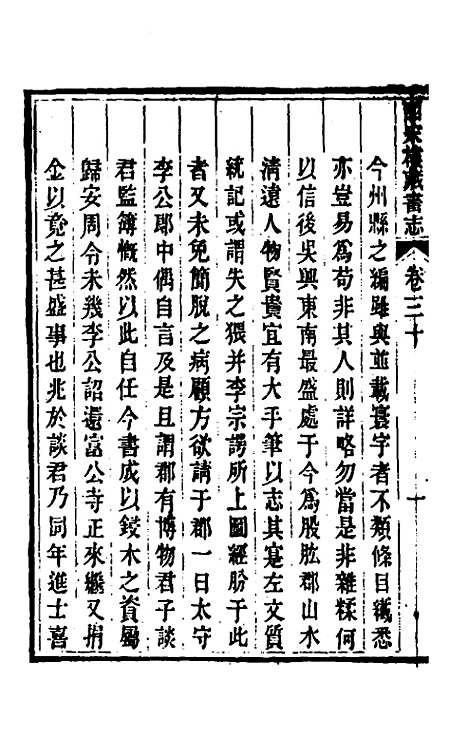 皕宋樓藏書志
卷三十
今州縣之編雖與並載寰宇者不類條目纎悉
亦豈易爲苟非其人則詳略勿當是非雜糅何
以信後吳興東南最盛處于今爲股肱郡山水
清遠人物賢貴宜有大手筆以志其寔左文質
統記或謂失之猥并李宗諤所上圖經昉于此
者又未免簡脫之病顧方欲請于郡一日太守
李公郎中偶自言及是且謂郡有博物君子談
君監簿慨然以此自任今書成以鋟木之資屬
歸安周令未幾李公詔還富公寺正來繼又捐
金以竟之甚盛事也兆於談君乃同年進士喜